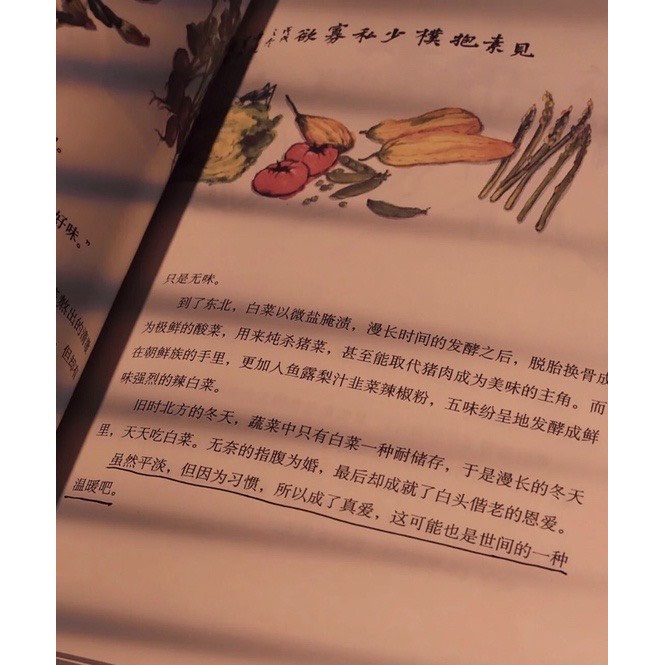 好味。”
见素抱朴少私寡欲
只是无味。
到了东北，白菜以微盐腌渍，漫长时间的发酵之后，脱胎换骨成
为极鲜的酸菜，用来炖杀猪菜，甚至能取代猪肉成为美味的主角。而
在朝鲜族的手里，更加入鱼露梨汁韭菜辣椒粉，五味纷呈地发酵成鲜
味强烈的辣白菜。
旧时北方的冬天，蔬菜中只有白菜一种耐储存，于是漫长的冬天
里，天天吃白菜。无奈的指腹为婚，最后却成就了白头偕老的恩爱。
虽然平淡，但因为习惯，所以成了真爱，这可能也是世间的一种
温暖吧。